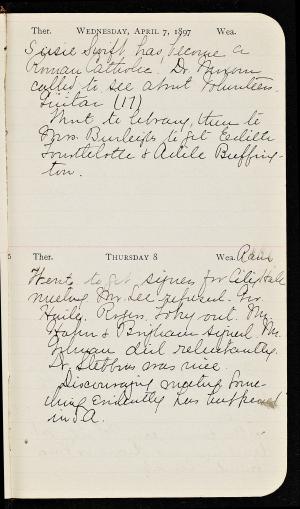 Ther. WEDNESDAY, APRIL 7, 1897 Wea.
Susie Swift has become a
Roman Catholic. Dr.
called to see about Volunteers.
Guitar (17)
Went to library, then to
Mrs. Burleigh's to get Edith
& Adele Buffing-
ton.
Ther. THURSDAY 8 Wea. Rain
Went to get signers for City Hall
meeting. Mr. Lee refused. Gov
Haile, Rogers, out. Mr.
Hahn & Brigham signed. Mr.
did reluctantly.
Dr. Stebbins was nice.
Discouraging meeting. Some-
thing evidently has happened
in S.A.